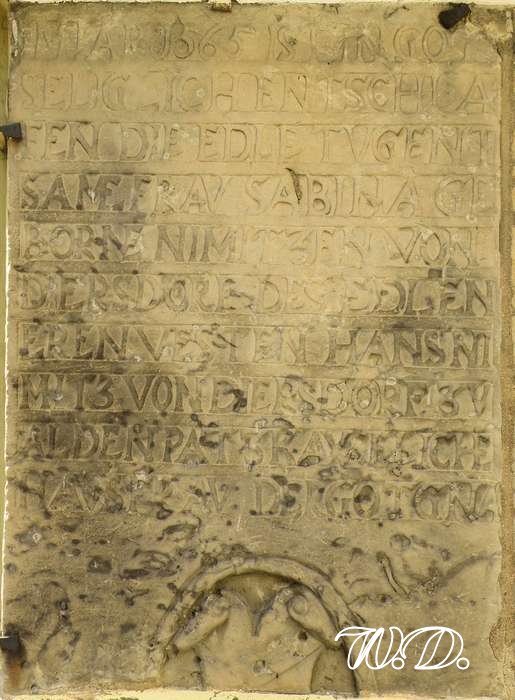 IM IAR 1665 IST IN GOT
SELIGLICH ENTSCHLA
FEN DIE EDLE TVGENT
SAME FRAV SABINA GE
BORNE NIMITZEN VON
DIERSDORF DES EDLEN
ERENVESTEN HANS NI
MITZ VON DIERSDORF ZV
ALDEN PATSKAV ELICHE
HAVSFRAV DER GOT GNA
W. D.